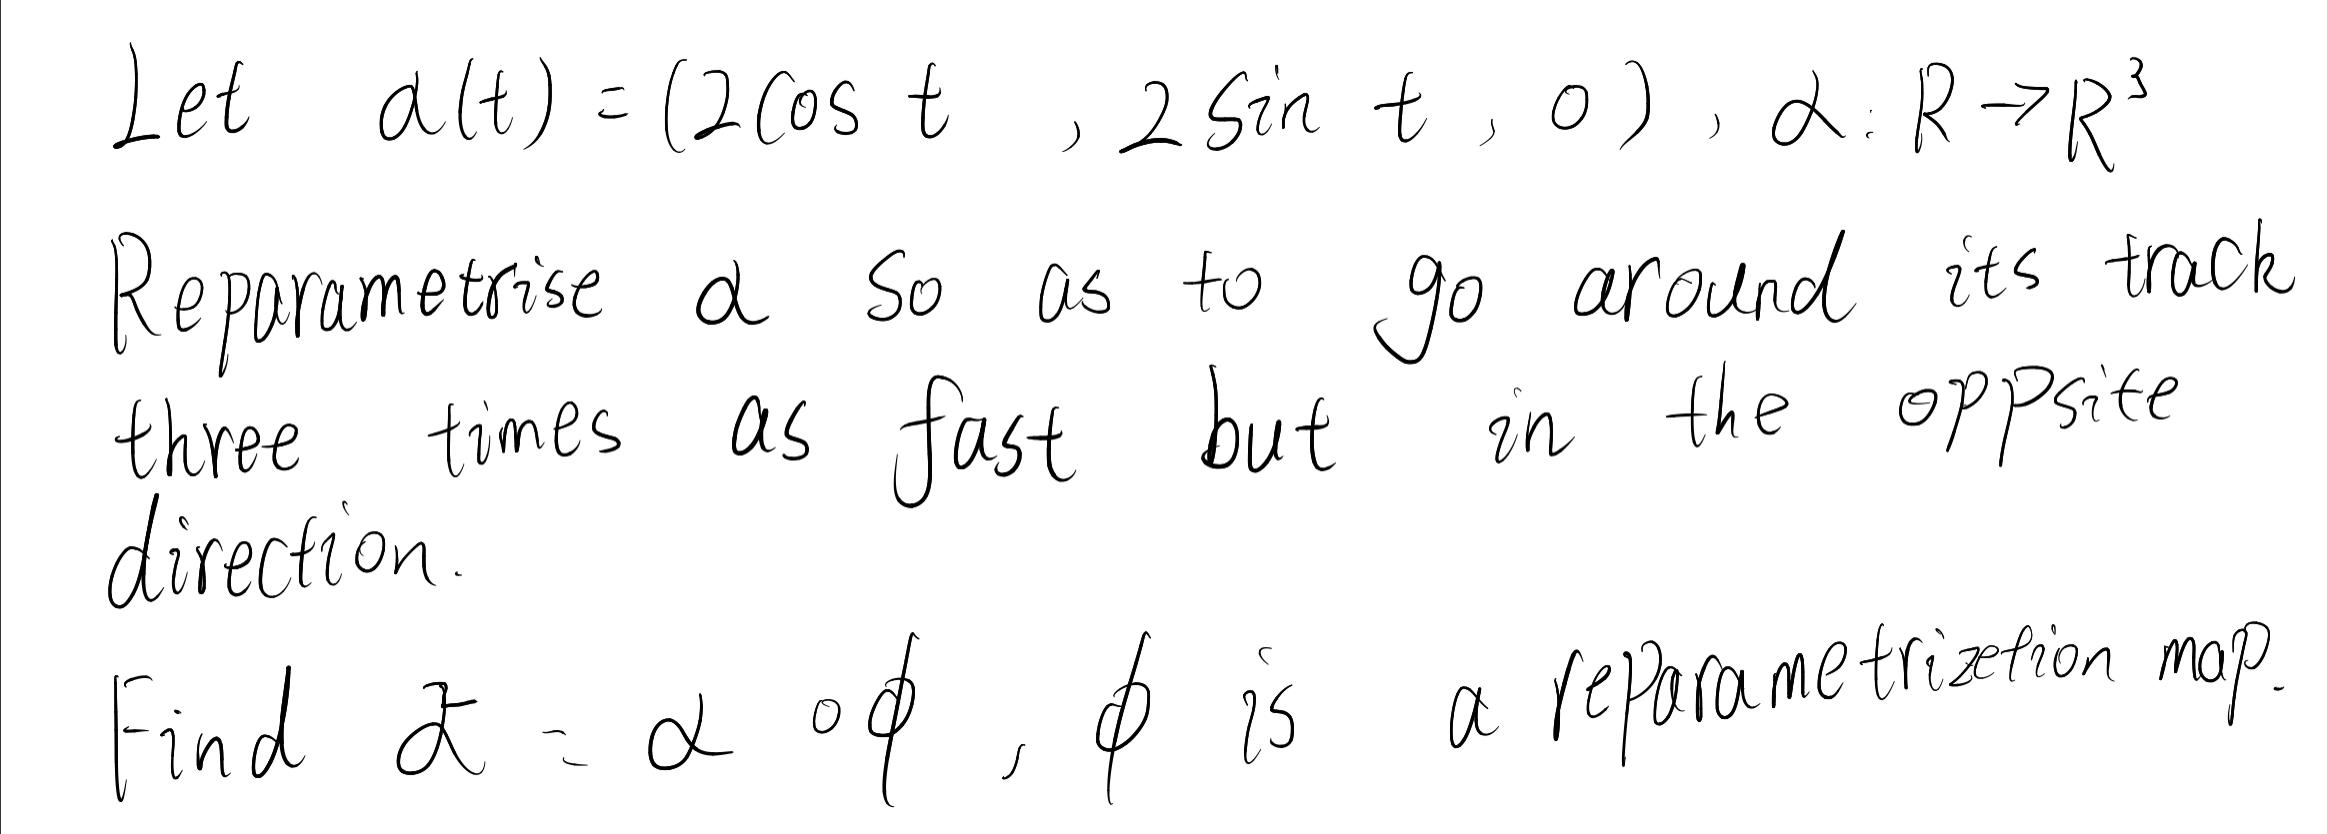 Let α(t) = (2cos t , 2 sin t , 0) , α : R → R³
Reparametrise α so as to go around its track
three times as fast but in the oppsite
direction.
Find ᾱ = α ∘ ϕ , ϕ is a reparametrizetion map.